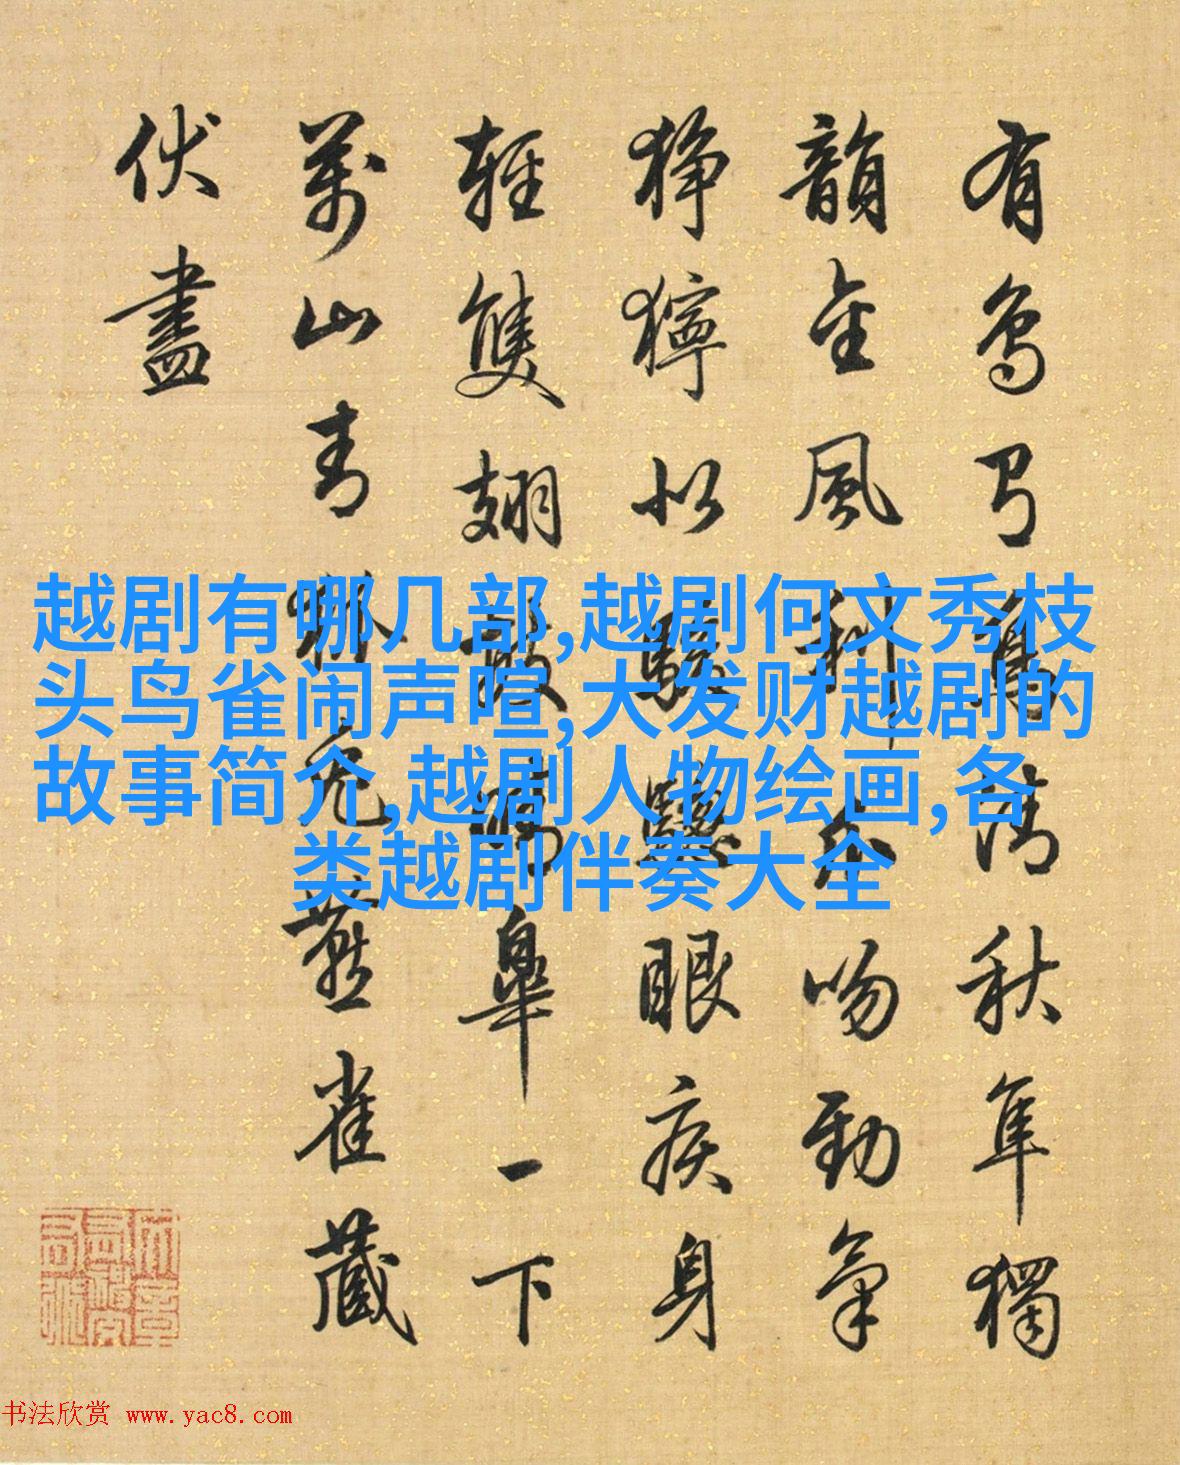 有鳥乃清秋隼獨
韻金風利吻勁氣
猙獰似眼疾身
輕雙翅皋一下
萬山青兔燕雀藏
伏盡
越剧有哪几部,越剧何文秀枝
头鸟雀闹声喧,大发财越剧的
故事简介,越剧人物绘画,各
类越剧伴奏大全
书法欣赏 www.yac8.com